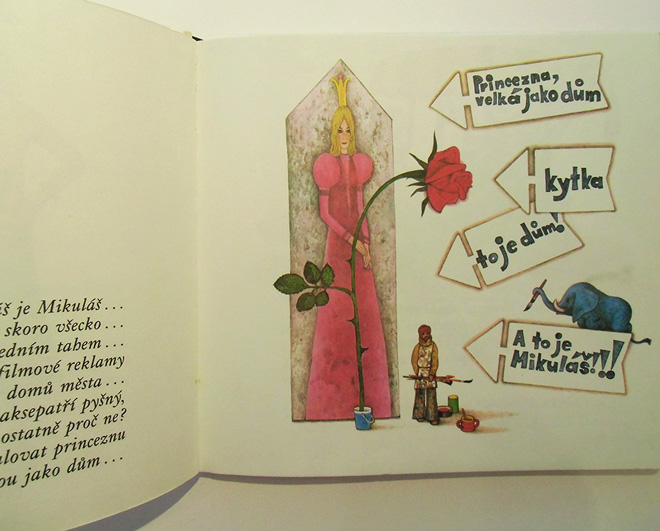 áš je Mikuláš...
skoro všecko...
edním tahem...
filmové reklamy
domů města...
aksepatří pyšný,
ostatně proč ne?
alovat princeznu
ou jako dům...
Princezna,
velká jako dům
kytka
to je dům!
A to je
Mikuláš!!!